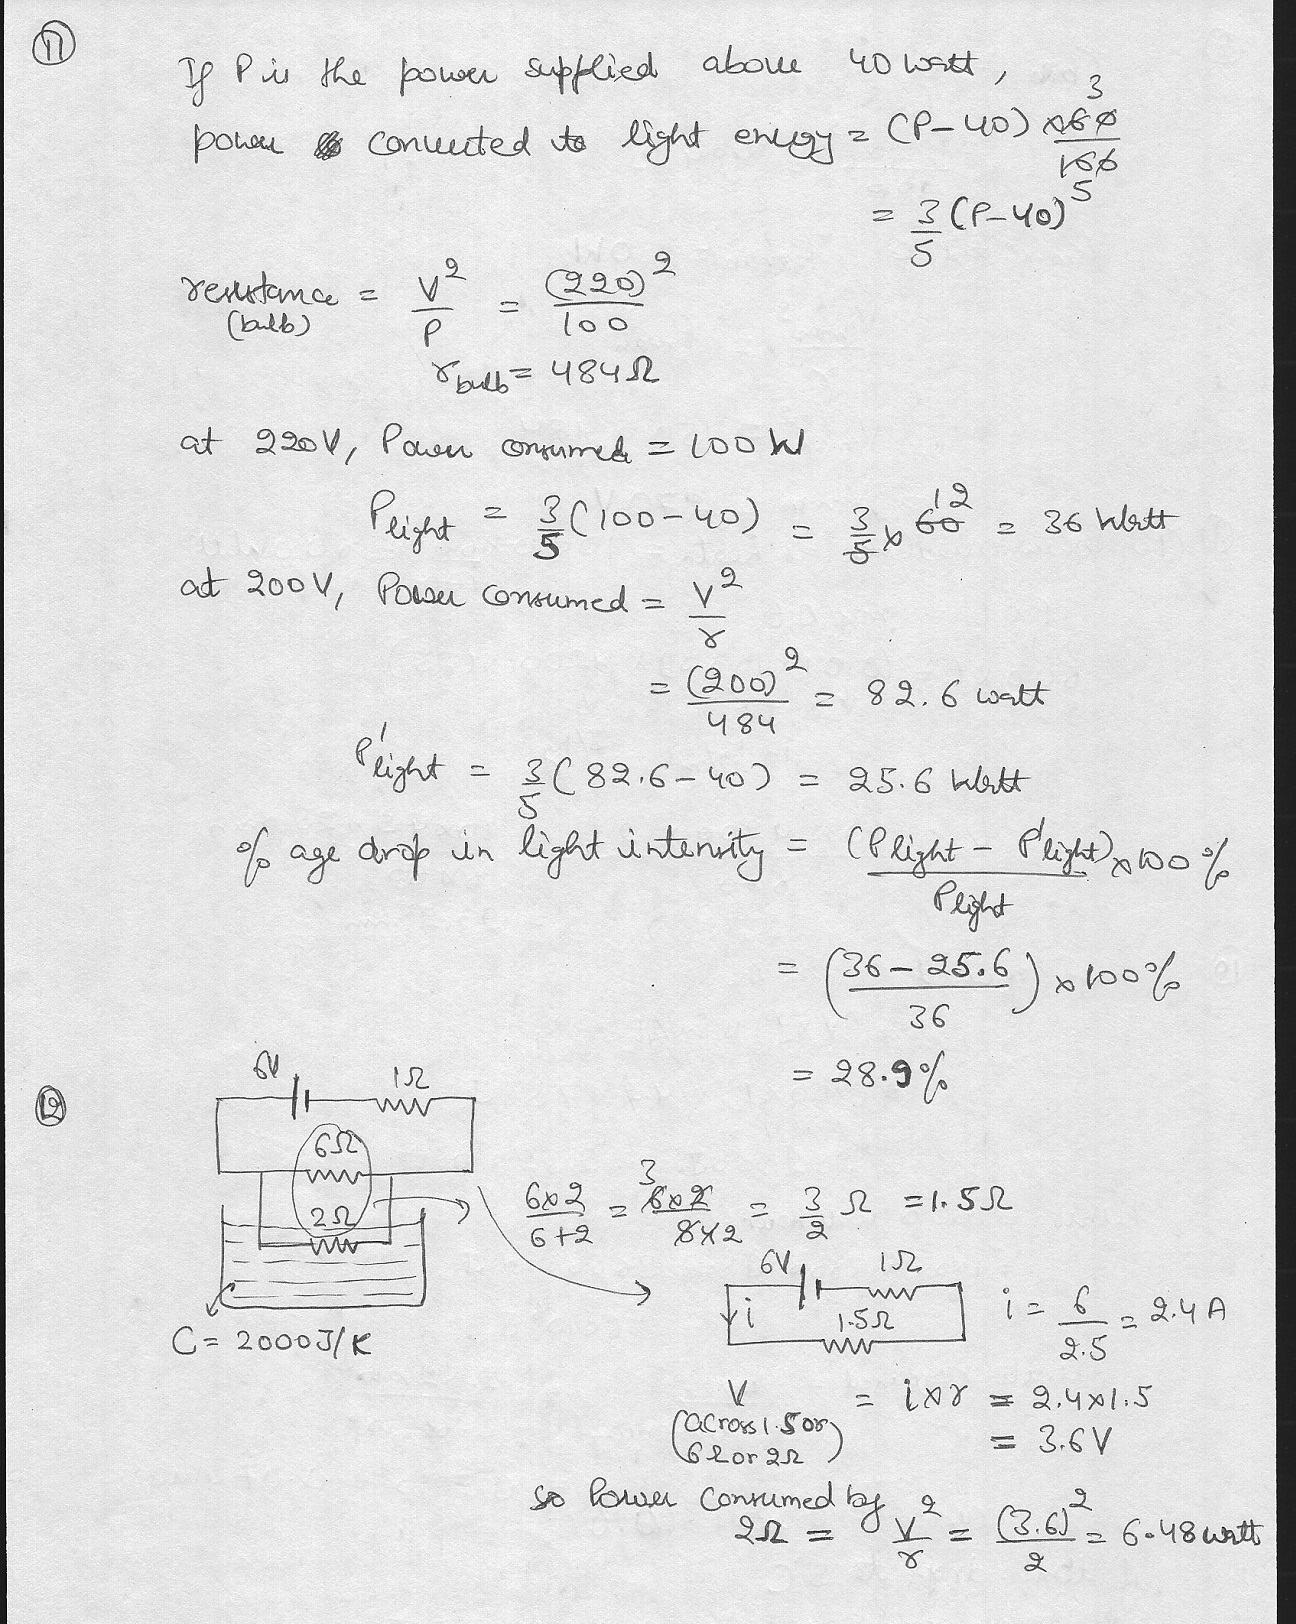 11
If P is the power supplied above 40 watt,
power converted to light energy = (P-40) × 60/100 3 5
= 3/5 (P-40)
resistance (bulb) = V²/P = (220)²/100
r bulb = 484Ω
at 220V, Power consumed = 100 W
P light = 3/5 (100-40) = 3/5 × 60 12 = 36 Watt
at 200V, Power consumed = V²/r
= (200)²/484 = 82.6 watt
P'light = 3/5 (82.6-40) = 25.6 Watt
% age drop in light intensity = (P light - P'light)/P light × 100%
= (36-25.6/36) × 100%
= 28.9%
12
6V 1Ω
6Ω
2Ω
6×2/6+2 = 6×2/8×2 3 = 3/2 Ω = 1.5Ω
C = 2000 J/K
6V 1Ω
i 1.5Ω
i = 6/2.5 = 2.4A
V (across 1.5 or 6Ω or 2Ω) = i×r = 2.4×1.5
= 3.6V
so Power consumed by
2Ω = V²/r = (3.6)²/2 = 6.48 watt